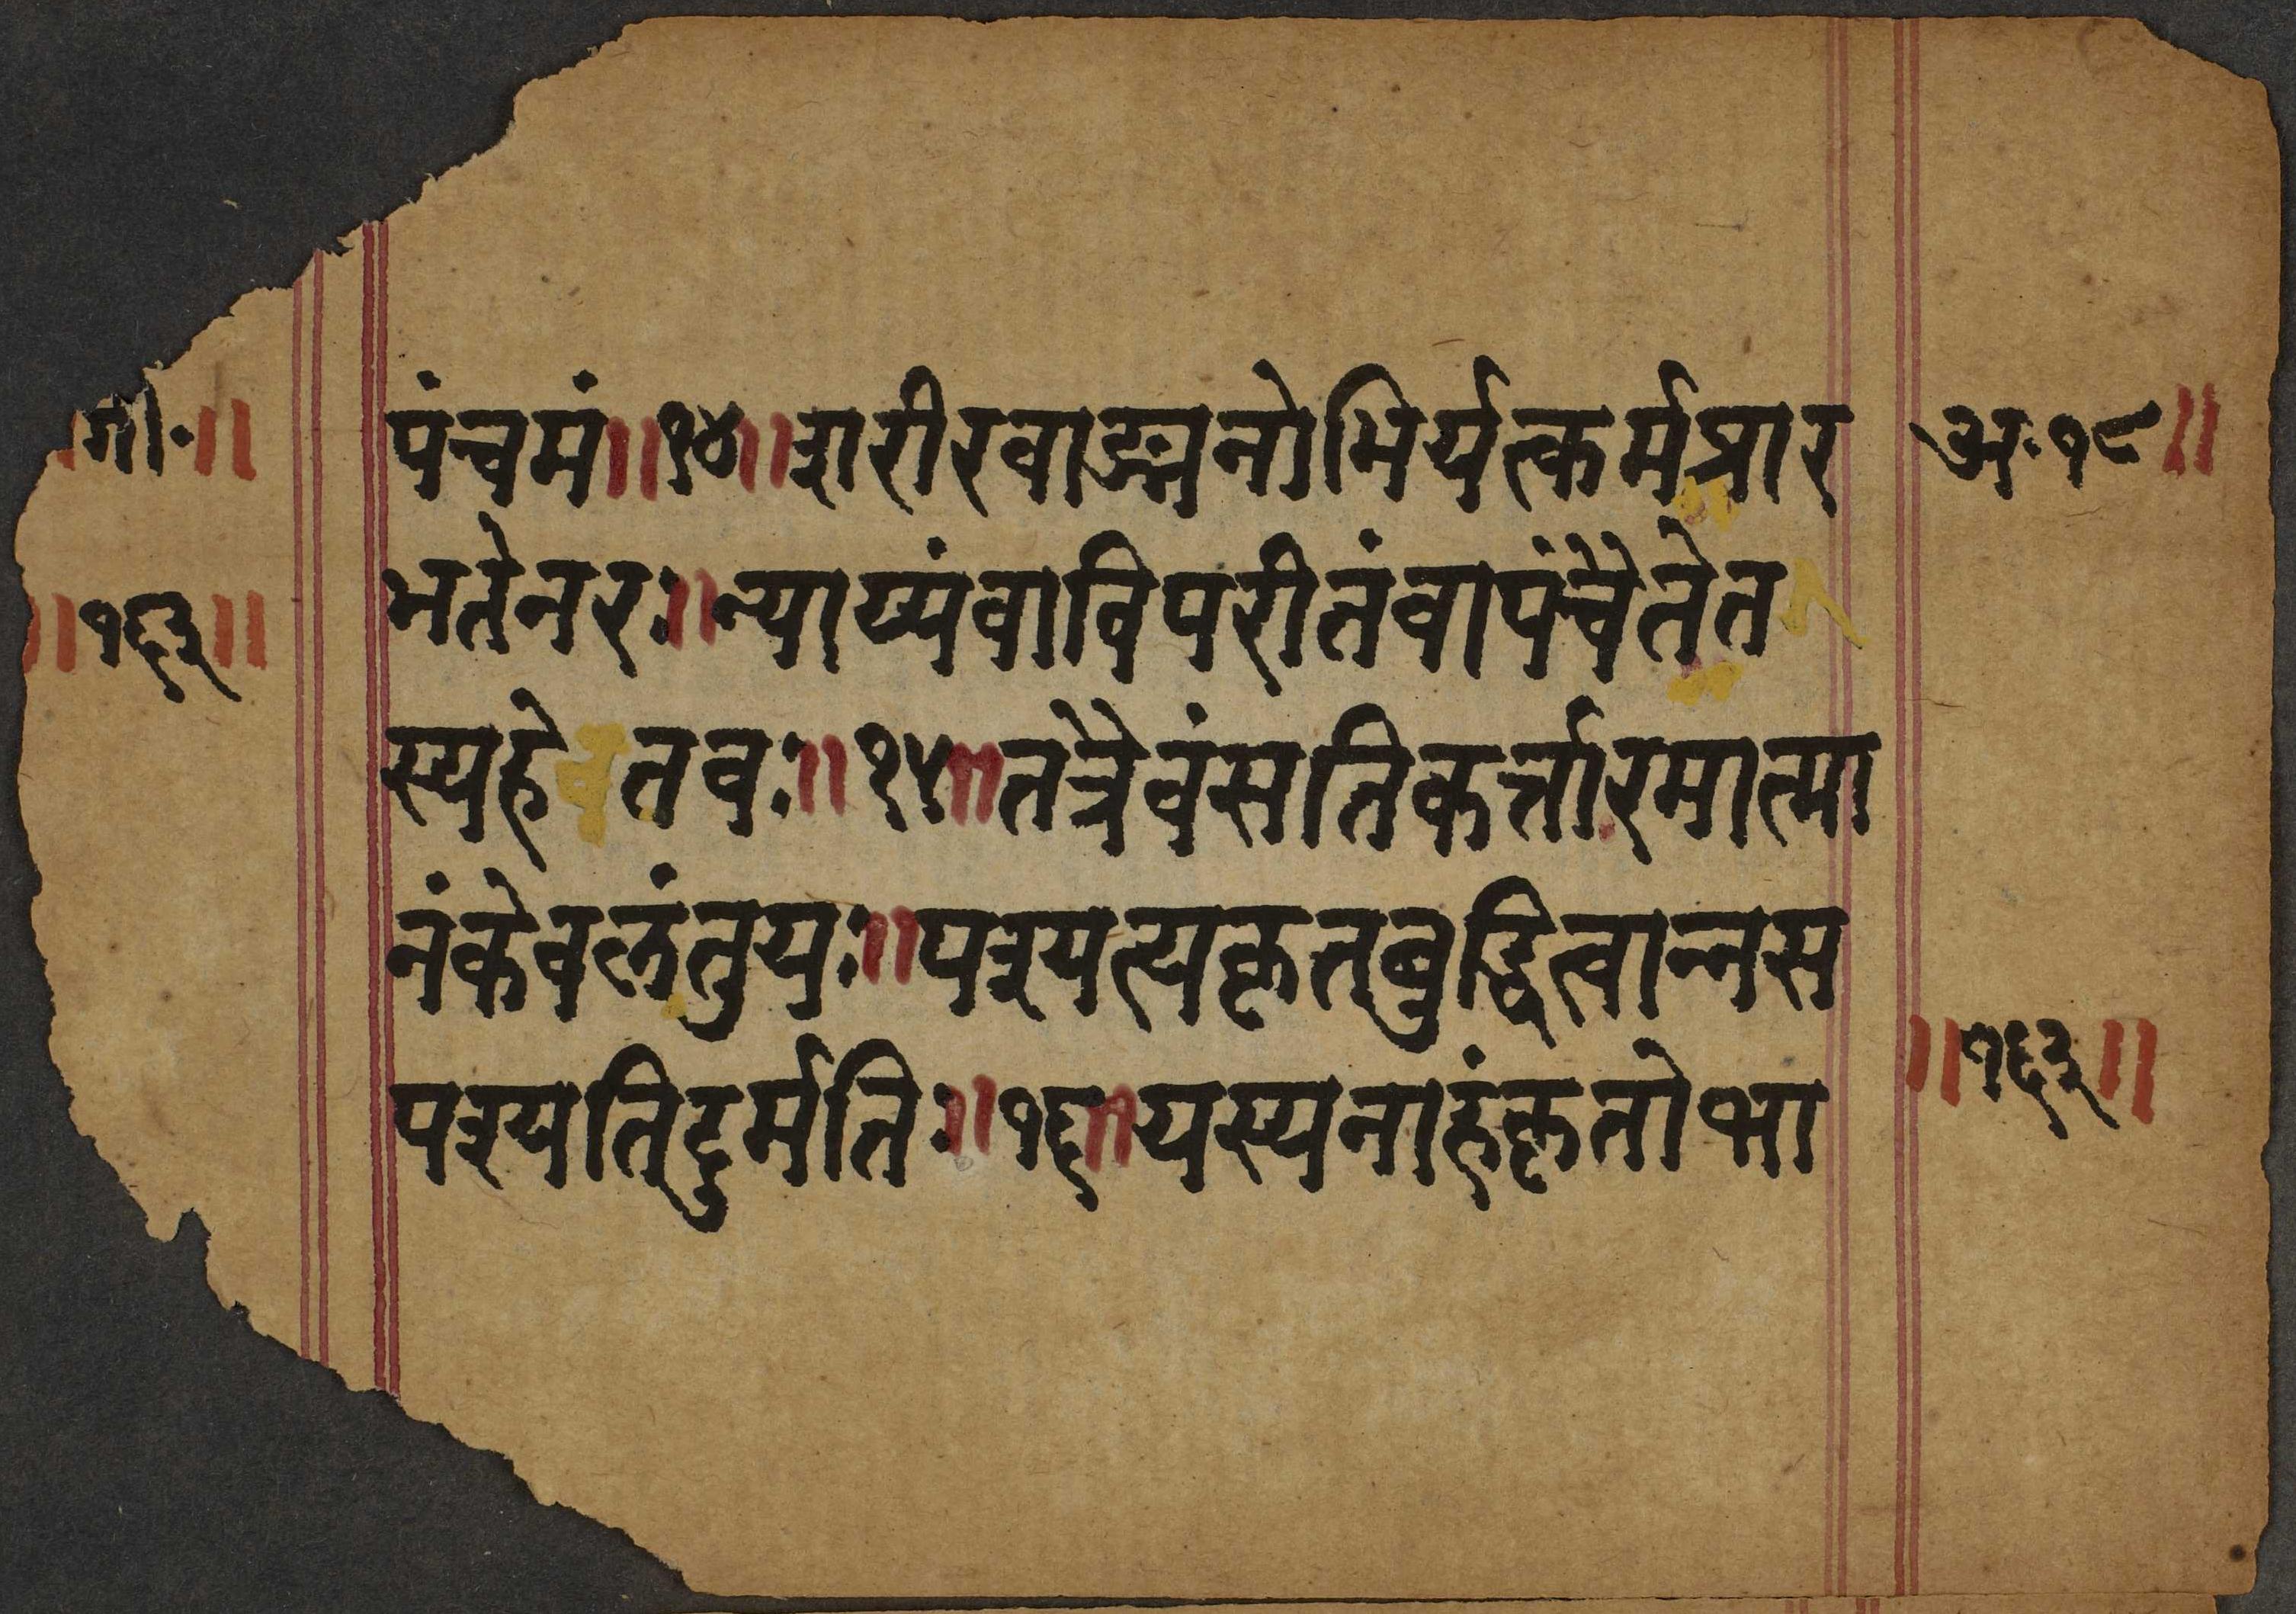 गी॰॥
॥१६३॥
पंचमं॥१४॥शरीरवाङ्मनोभिर्यत्कर्मप्रार
भतेनरः॥न्याय्यंवाविपरीतंवापंचैतेत
स्यहेतवः॥१५॥तत्रैवंसतिकर्त्तारमात्मा
नंकेवलंतुयः॥पश्यत्यकृतबुद्धित्वान्नस
पश्यतिदुर्मतिः॥१६॥यस्यनाहंकृतोभा
अ॰१८॥
॥१६३॥